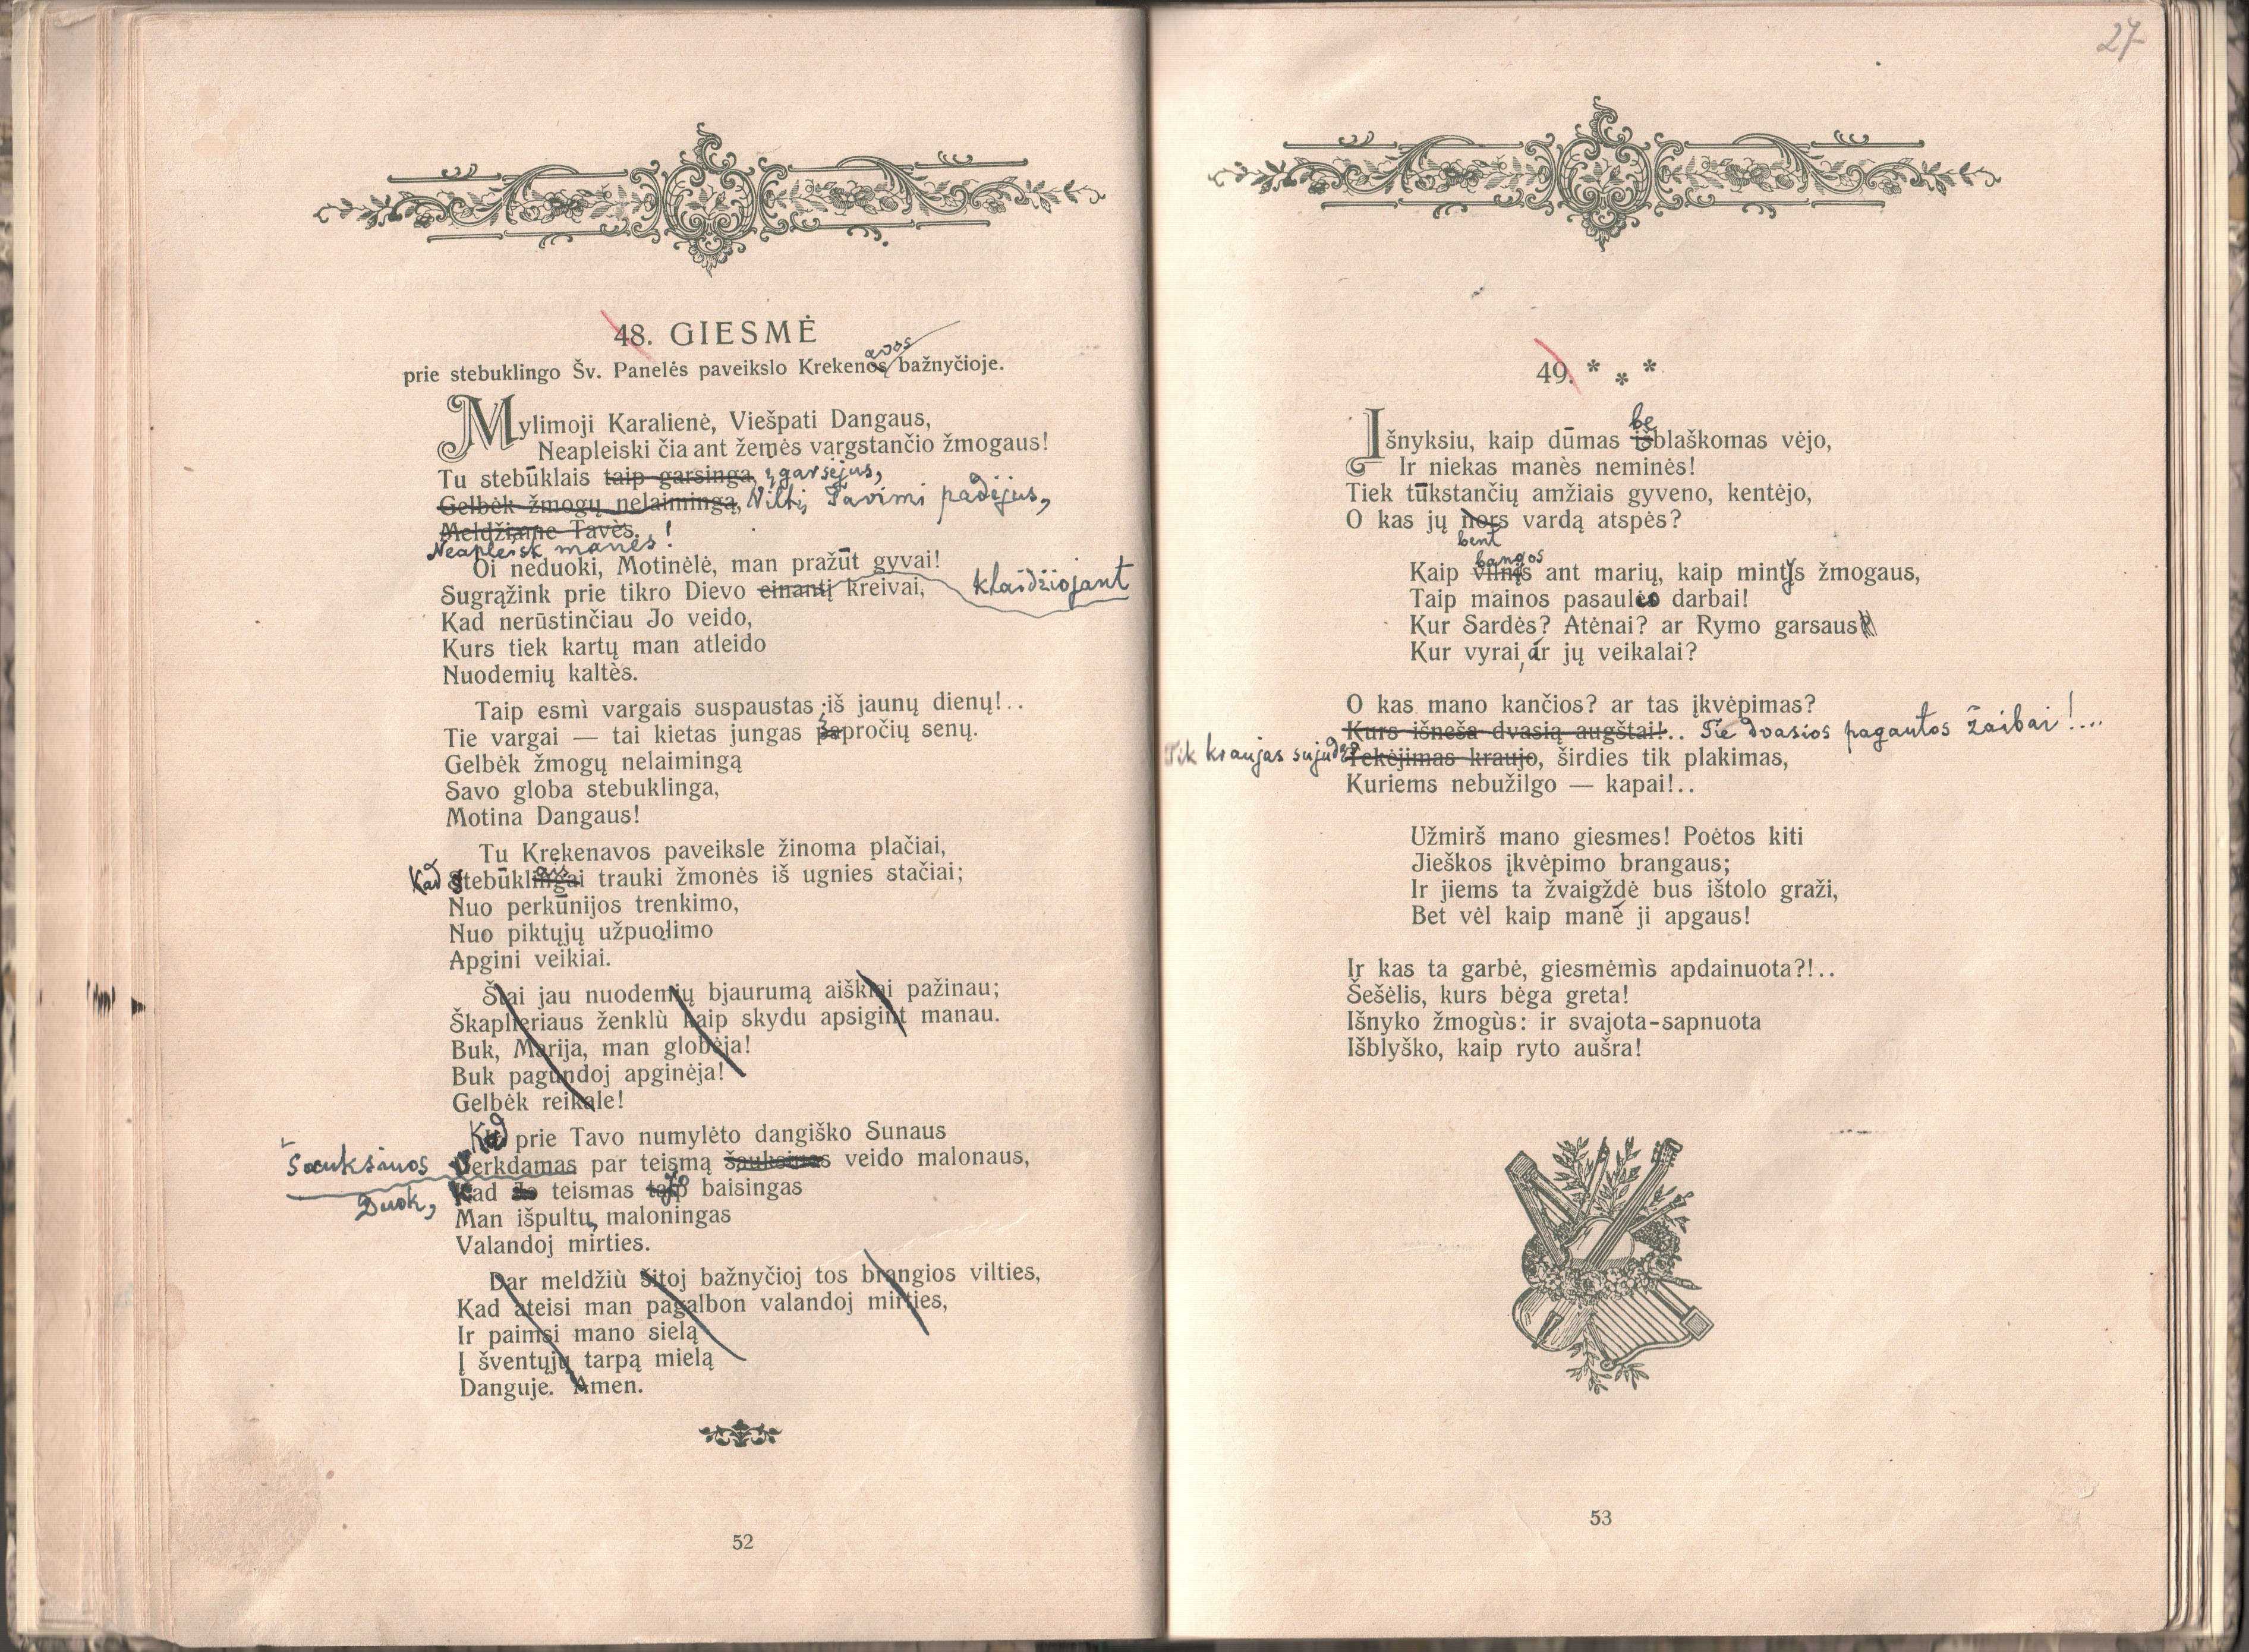 48. GIESMĖ
avos
prie stebuklingo Šv. Panelės paveikslo Krekenos bažnyčioje.
Mylimoji Karalienė, Viešpati Dangaus,
Neapleiski čia ant žemės vargstančio žmogaus!
Tu stebūklais taip garsinga, įgarsėjus,
Gelbėk žmogų nelaimingą, Viltį Tavimi padėjus,
Meldžiame Tavès.
Neapleisk manės!
Oi neduoki, Motinėlė, man pražūt gyvai!
Sugrąžink prie tikro Dievo einantį kreivai, klaidžiojant
Kad nerūstinčiau Jo veido,
Kurs tiek kartų man atleido
Nuodemių kaltės.
Taip esmì vargais suspaustas iš jaunų dienų!..
Tie vargai — tai kietas jungas papročių senų.
Gelbėk žmogų nelaimingą
Savo globa stebuklinga,
Motina Dangaus!
Tu Krekenavos paveiksle žinoma plačiai,
Kad stebūklingai trauki žmonės iš ugnies stačiai;
Nuo perkūnijos trenkimo,
Nuo piktųjų užpuolimo
Apgini veikiai.
Štai jau nuodemių bjaurumą aiškiai pažinau;
Škaplieriaus ženklù kaip skydu apsigint manau.
Buk, Marija, man globėja!
Buk pagundoj apginėja!
Gelbėk reikale!
Kad prie Tavo numylėto dangiško Sunaus
Šauksmos Verkdamas par teismą šauksmas veido malonaus,
Duok, Kad Jo teismas taip Jo baisingas
Man išpultų, maloningas
Valandoj mirties.
Dar meldžiù šitoj bažnyčioj tos brangios vilties,
Kad ateisi man pagalbon valandoj mirties,
Ir paimsi mano sielą
Į šventųjų tarpą mielą
Danguje. Amen.
52
27
49. * * *
be
Išnyksiu, kaip dūmas išblaškomas vėjo,
Ir niekas manės neminės!
Tiek tūkstančių amžiais gyveno, kentėjo,
O kas jų nors vardą atspės?
bent
bangos
Kaip vilnįs ant marių, kaip mintys žmogaus,
Taip mainos pasaulio darbai!
Kur Sardės? Atėnai? ar Rymo garsaus
Kur vyrai, ar jų veikalai?
O kas mano kančios? ar tas įkvėpimas?
Kurs išneša dvasią augštai!.. Tie dvasios pagautos žaibai!...
Tik kraujas sujudęs Tekėjimas kraujo, širdies tik plakimas,
Kuriems nebužilgo — kapai!..
Užmirš mano giesmes! Poėtos kiti
Jieškos įkvėpimo brangaus;
Ir jiems ta žvaigždė bus ištolo graži,
Bet vėl kaip manė ji apgaus!
Ir kas ta garbė, giesmėmìs apdainuota?!..
Šešėlis, kurs bėga greta!
Išnyko žmogùs: ir svajota-sapnuota
Išblyško, kaip ryto aušra!
53